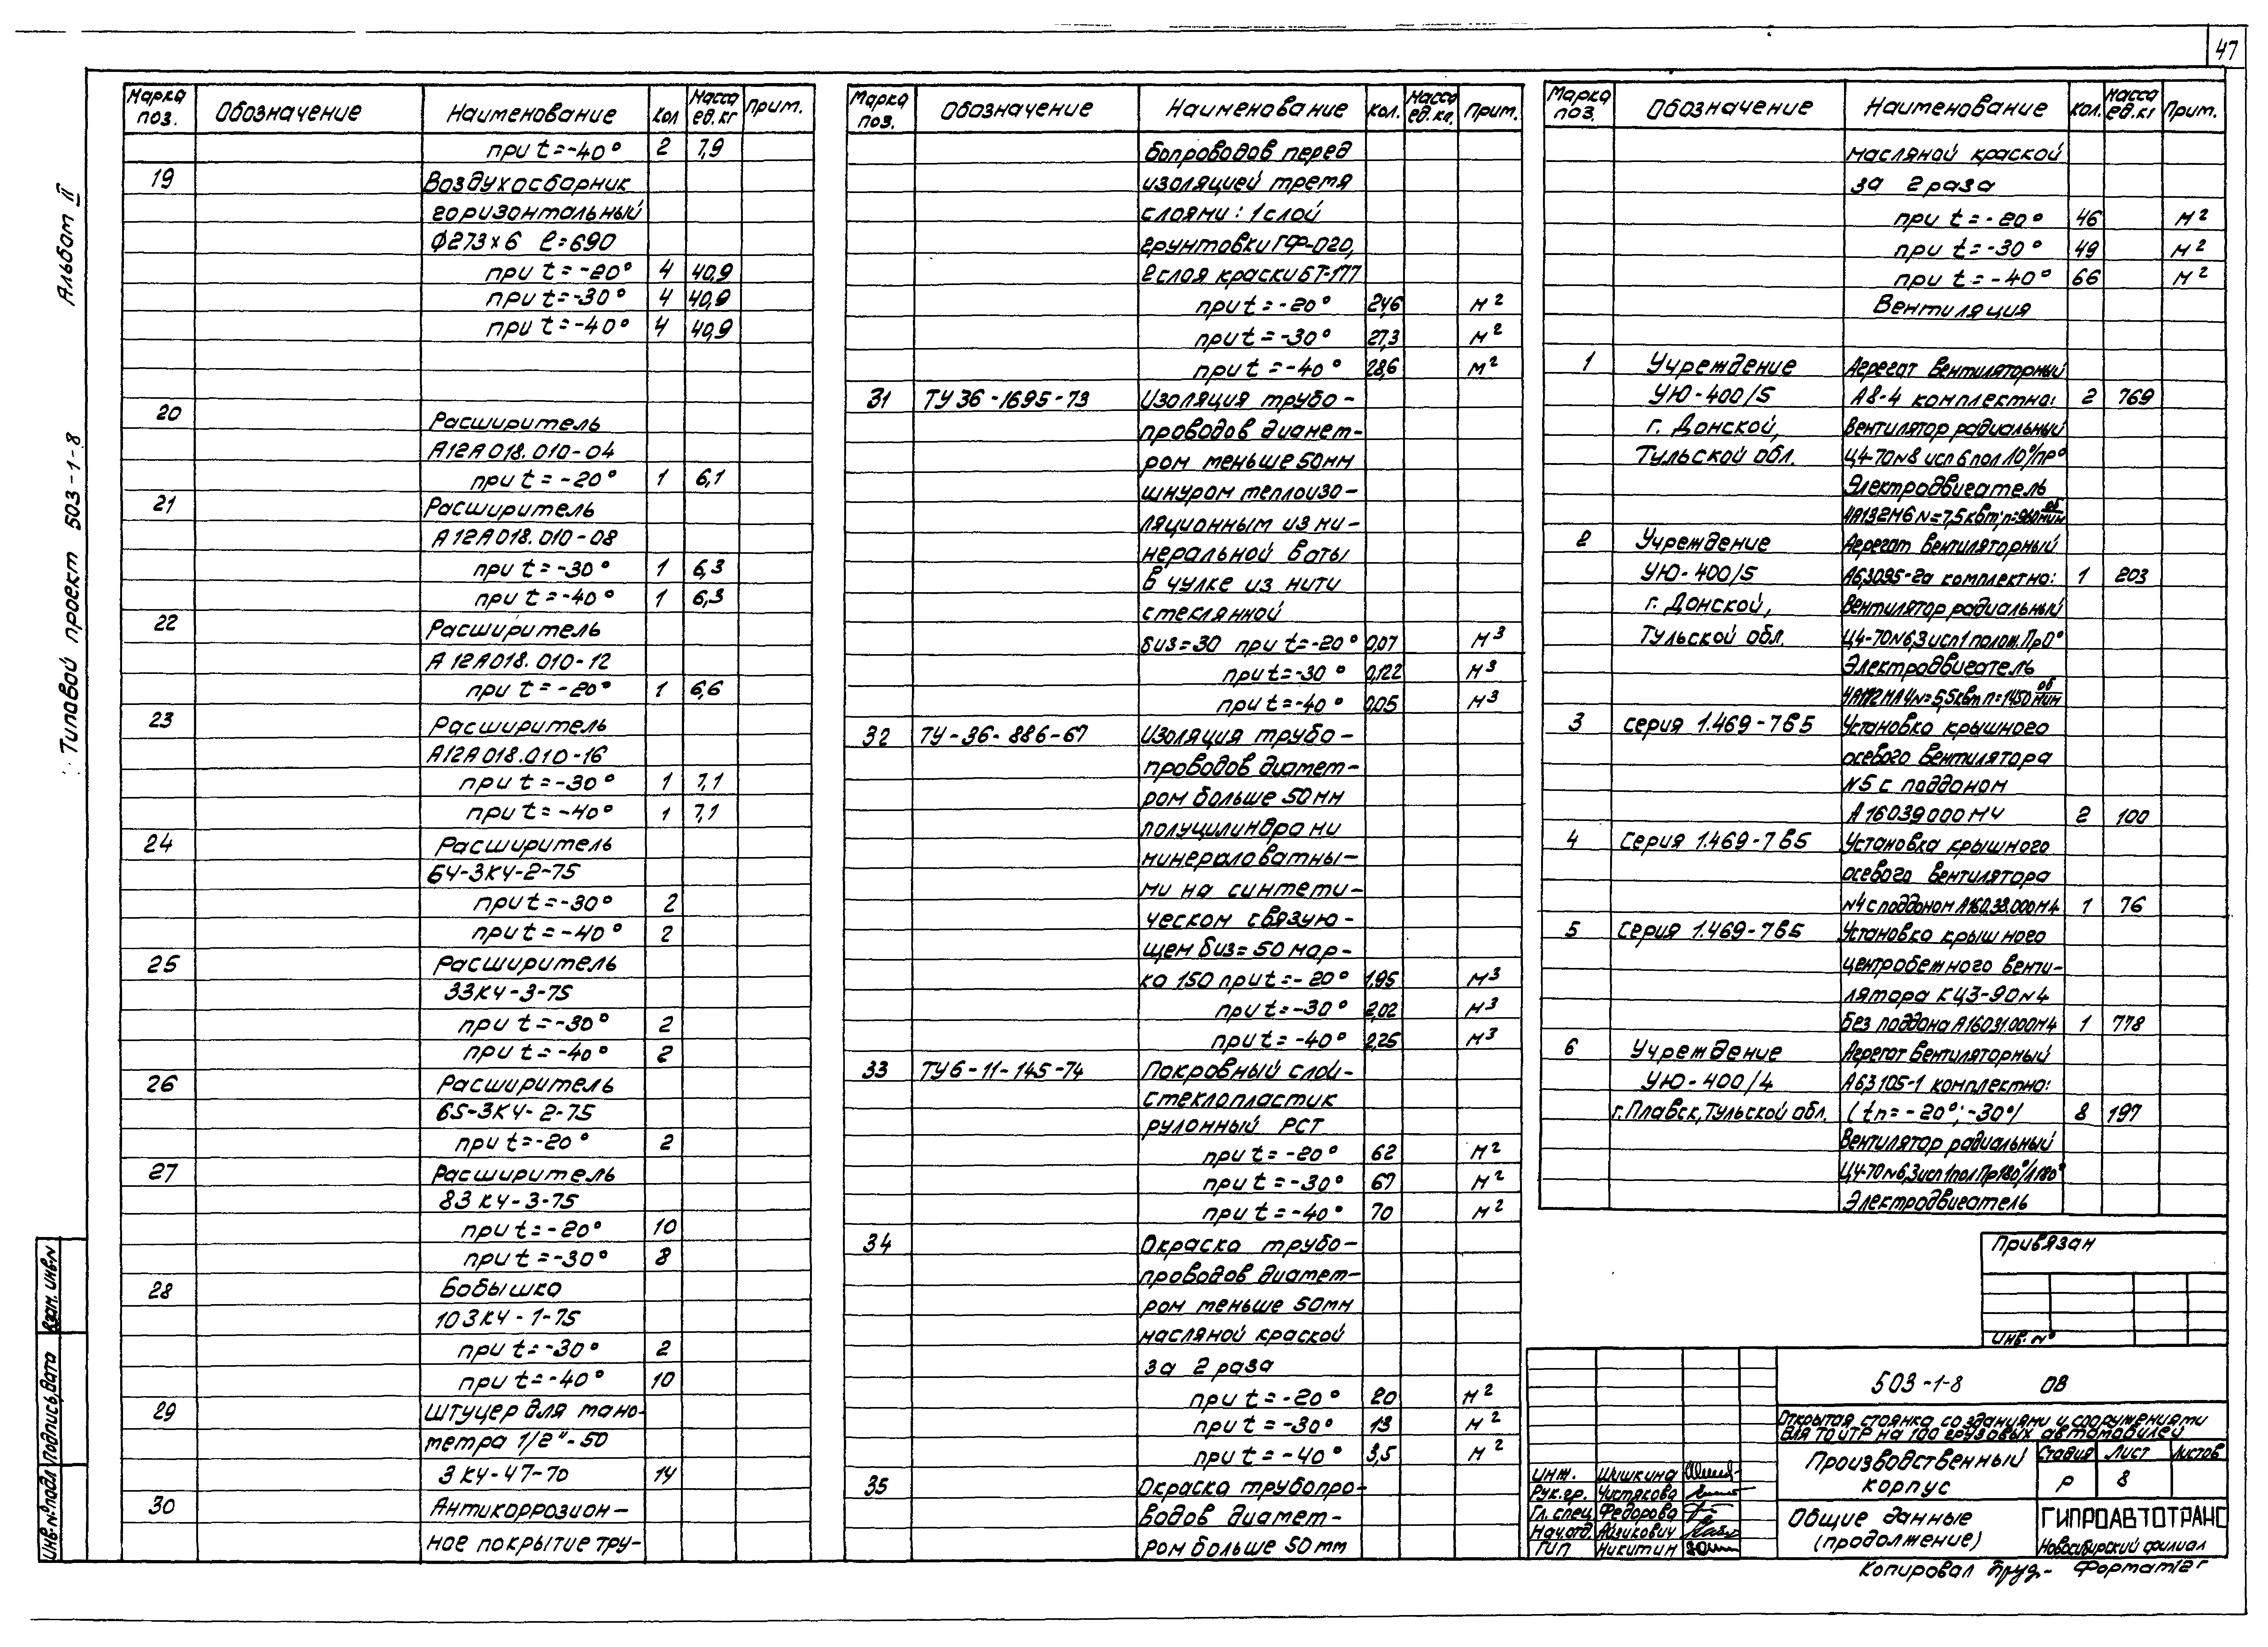 47
Альбом II
Типовой проект 503-1-8
Марка поз. Обозначение Наименование Кол Масса ед. кг Прим.
при t=-40° 2 7,9
19 Воздухосборник
горизонтальный
Ф273×6 ℓ=690
при t=-20° 4 40,9
при t=-30° 4 40,9
при t=-40° 4 40,9
20 Расширитель
А12А018.010-04
при t=-20° 1 6,1
21 Расширитель
А12А018.010-08
при t=-30° 1 6,3
при t=-40° 1 6,3
22 Расширитель
А12А018.010-12
при t=-20° 1 6,6
23 Расширитель
А12А018.010-16
при t=-30° 1 7,1
при t=-40° 1 7,1
24 Расширитель
64-3К4-2-75
при t=-30° 2
при t=-40° 2
25 Расширитель
33К4-3-75
при t=-30° 2
при t=-40° 2
26 Расширитель
65-3К4-2-75
при t=-20° 2
27 Расширитель
83К4-3-75
при t=-20° 10
при t=-30° 8
28 Бобышка
103К4-1-75
при t=-30° 2
при t=-40° 10
29 Штуцер для мано-
метра 1/2"-50
3К4-47-70 14
30 Антикоррозион-
ное покрытие тру-
Марка поз. Обозначение Наименование Кол. Масса ед. кг. Прим.
бопроводов перед
изоляцией тремя
слоями: 1 слой
грунтовки ГФ-020,
2 слоя краски БТ-177
при t=-20° 24,6 м²
при t=-30° 27,3 м²
при t=-40° 28,6 м²
31 ТУ 36-1695-73 Изоляция трубо-
проводов диамет-
ром меньше 50мм
шнуром теплоизо-
ляционным из ми-
неральной ваты
в чулке из нити
стеклянной
биз=30 при t=-20° 0,07 м³
при t=-30° 0,122 м³
при t=-40° 0,05 м³
32 ТУ-36-886-67 Изоляция трубо-
проводов диамет-
ром больше 50мм
полуцилиндрами
минераловатны-
ми на синтети-
ческом связую-
щем биз=50 мар-
ка 150 при t=-20° 1,95 м³
при t=-30° 2,02 м³
при t=-40° 2,25 м³
33 ТУ6-11-145-74 Покровный слой-
стеклопластик
рулонный РСТ
при t=-20° 62 м²
при t=-30° 67 м²
при t=-40° 70 м²
34 Окраска трубо-
проводов диамет-
ром меньше 50мм
масляной краской
за 2 раза
при t=-20° 20 м²
при t=-30° 13 м²
при t=-40° 3,5 м²
35 Окраска трубопро-
водов диамет-
ром больше 50мм
Марка поз. Обозначение Наименование Кол. Масса ед. кг Прим.
масляной краской
за 2 раза
при t=-20° 46 м²
при t=-30° 49 м²
при t=-40° 66 м²
Вентиляция
1 Учреждение Агрегат вентиляторный
УЮ-400/5 А8-4 комплектна: 2 769
г. Донской, Вентилятор радиальный
Тульской обл. Ц4-70№8 исп 6 пол Л0°/Пр°
Электродвигатель
4А132М6 N=7,5 квт; n=960 об/мин
2 Учреждение Агрегат вентиляторный
УЮ-400/5 А63095-2а комплектно: 1 203
г. Донской, Вентилятор радиальный
Тульской обл. Ц4-70№6,3 исп 1 полож. Пр0°
Электродвигатель
4А112МА4 N=5,5 квт n=1450 об/мин
3 серия 1.469-7в5 Установка крышного
осевого вентилятора
№5 с поддоном
А16039000М4 2 100
4 Серия 1.469-7в5 Установка крышного
осевого вентилятора
№4 с поддоном А16038.000М4 1 76
5 Серия 1.469-7в5 Установка крышного
центробежного венти-
лятора КЦ3-90№4
без поддона А16031.000М4 1 778
6 Учреждение Агрегат вентиляторный
УЮ-400/4 А63105-1 комплектно:
г. Плавск, Тульской обл. (tn=-20°; -30°) 8 197
Вентилятор радиальный
Ц4-70№6,3 исп 1 пол Пр180°/Л180°
Электродвигатель
Привязан
Инв. №
503-1-8 ОВ
Открытая стоянка со зданиями и сооружениями
для ТО и ТР на 100 грузовых автомобилей
Производственный корпус
Стадия Лист Листов
Р 8
Общие данные
(продолжение)
ГИПРОАВТОТРАНС
Новосибирский филиал
Инж. Шишкина
Рук.гр. Чистякова
Гл.спец. Федорова
Нач.отд. Айзикович
ГИП Никитин
Копировал Формат 12г
Взам. инв.№
Подпись, дата
Инв.№ подл